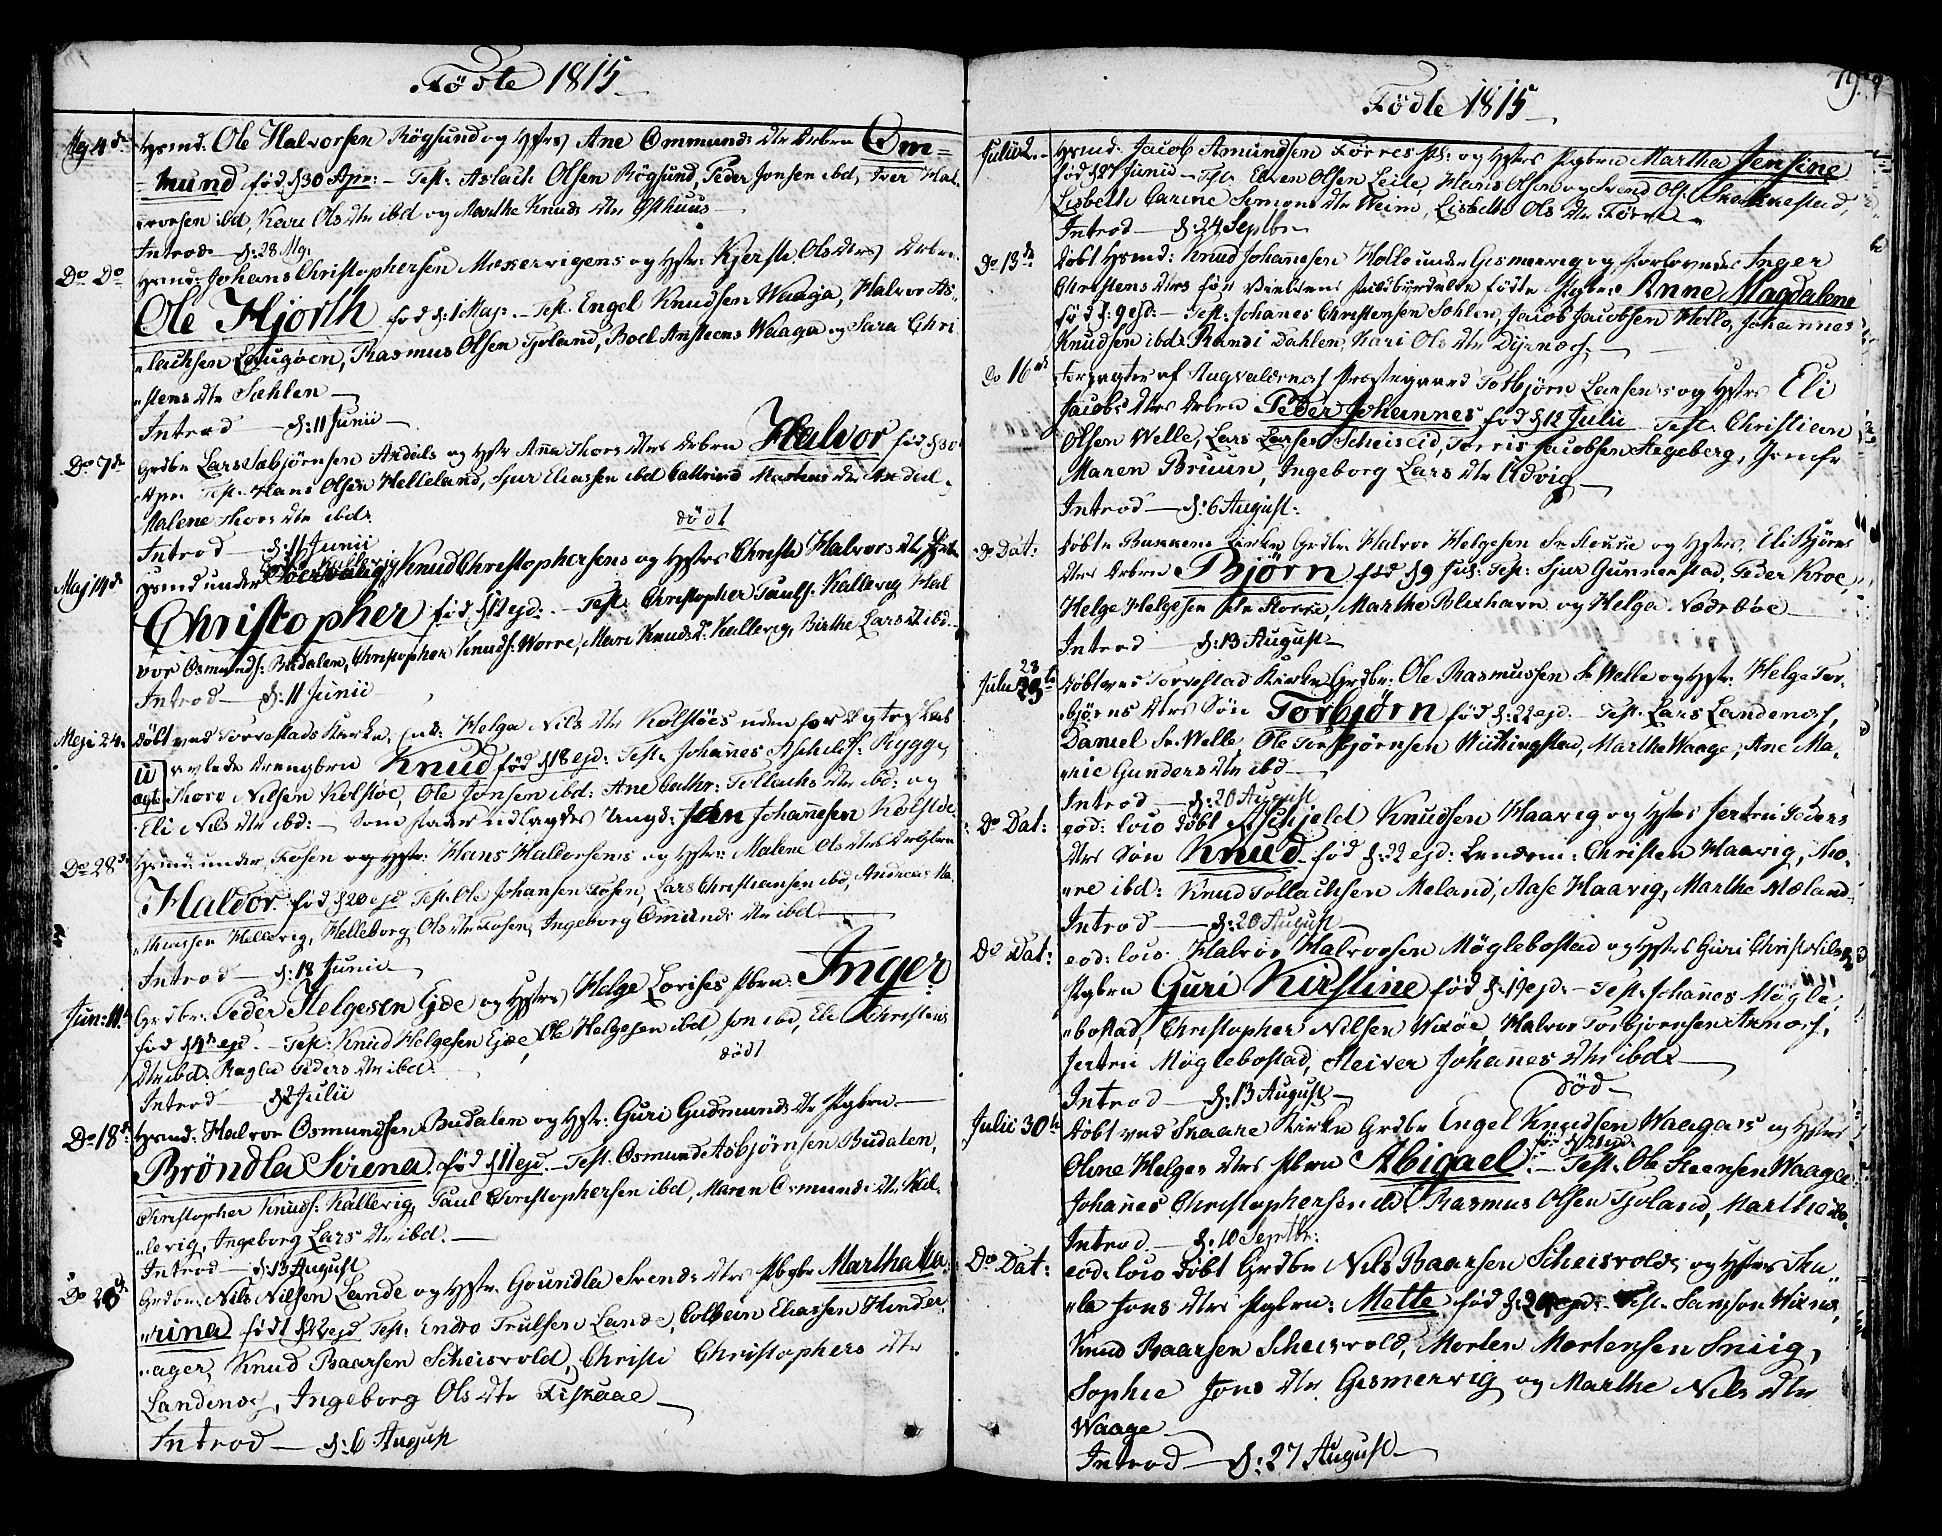 Födte 1815
Maj 4de Hsmd. Ole Halvorsen Rögsund og Hstrs Ane Ommunds dtr Drbrn Om=
=mund föd d 30 Apr: - Test: Aslach Olsen Rögsund, Peder Jonsen ibd, Iver Hal=
vorsen ibd, Kari Ols dtr ibd og Marthe Knuds dtr Østhuus
Introd - d: 28 Maj.
Do Do Hsmd: Johans Christophersen Moxervigens og Hstr: Kjersti Olsdtrs Drbrn
Ole Hjorth föd d: 1 Maj. - Test. Engel Knudsen Waaga, Halvor As=
lachsen Laugøen, Rasmus Olsen Tjoland, Boel Ansteens Waaga og Sara Chri
stens dtr Sahlen
Introd - d: 11 Junii
Do 7de Grdbr Lars Asbjörnsen Ardals og Hstr Anna Thors dtrs Drbrn Halvor föd d 30
Apr. Test. Hans Olsen Helleland, Sjur Eliassen ibd Cathrine Mortens dtr Ardal,
Malene Thors dtr ibd.
død
Introd - d: 11 Junii
Maj 14de Hsmd under Kallevig Knud Christophersens og Hstrs Christi Halvors dtr
Christopher föd d 11 ejd: - Test: Christopher Pauls: Kallevig, Hal
vor Osmunds: Budalen, Christopher Knuds: Worre, Mari Knuds Dr Kallevig, Birthe Lars dtr ibd.
Introd - d: 11 Junii
Maji 24: Döbt ved Torvestads Kirke, Helga Nils dtr Kolstöes uden for Ægteskab
u avlede Drengebrn Knud föd d 18 ejd: Test: Johannes Rygge,
ægte Thore Nilsen Kolstöe, Ole Jonsen ibd: Ane Cathr: Tollachs dtr ibd: og
Eli Nils dtr ibd: - Som fader udlægdes Ungd: Jon Johannesen Kolstöe
Do 28de Hsmd: under Fosen og Hstr: Hans Haldorsens og Hstr: Malene Ols dtrs Drbrn
Haldor föd d 20 ejd Test. Ole Johansen Fosen, Lars Christiansen ibd, Andreas Ma
thiassen Hellevig, Helleborg Ols dtr Fosen, Ingeborg Omunds dtr ibd
Introd - d: 18 Junii
Jun: 11. Grdbr: Peder Helgesen Eide og Hstrs Helge Lorises Pbrn: Inger
föd d 4de ejd. - Test. Knud Helgesen Eide, Ole Helgesen ibd, Jon ibd, Eli Christens
dtr ibd: Ragla Peders dtr ibd.
dödt
Introd - d 2 Julii
Do 18de Hsmd: Halvor Osmundsen Budalen og Hstr: Guri Gudmunds dtr Pigbrn
Bröndla Sirena. föd d 11 ejd. - Test. Osmund Asbjörnsen Budalen,
Christopher Knuds: Kallevig, Paul Christophersen ibd, Maren Osmunds dtr Kal=
levig, Ingeborg Lars dtr ibd.
Introd - d: 13 August
Do 20de Grdbr: Nils Nilsen Lande og Hstr. Goundla Svends dtrs Pbrn Martha Ka
rina födt d 12 ejd Test. Endre Trulsen Lande, Colbein Eliassen Hinder
ager, Knud Baarsen Scheisvold, Christi Christophers dtr
Landenes, Ingeborg Ols dtr Fiskaae
Introd - d: 6 August
79.
Födte 1815
Julii 2. Hsmd. Jacob Amundsen Førres Pl: og Hstrs Pigbrn Martha Jensine
föd d 27 Junii - Test. Elven Olsen Leite, Hans Olsen og Svend Ols. Snekkestad,
Lisbeth Carine Simons dtr Weim, Lisbeth Ols dtr Førre
Introd - d: 24 Septbr
Do 13de Döbt Hsmd: Knud Johannesen Hollo under Gismervig og forlovendes Inger
Christens dtrs för Vielsen födte Pigbr: Anne Magdalene
föd d. 9 ejd. - Test: Johanes Christensen Sohlen, Jacob Jacobsen Hollo, Johannes
Knudsen ibd. Randi Dahlen, Kari Ols dtr Dyrnes.
Do 16de Forpagter af Augvaldsnes Præstegaard Torbjörn Larsens og Hstrs Eli
Jacobs dtrs Drbrn Peder Johannes föd d 12 Julii Test. Christian
Olsen Welle, Lars Larsen Scheiseid, Torris Jacobsen Stegeberg, Jomfr
Maren Bruun, Ingeborg Lars dtr Udvig
Introd - d: 6 August:
do Dat: Döbt Bukkens Kirke Grdbr Halvor Helgesen St. Houre og Hstrs, Eli Björns
dtrs Drbrn Björn föd d 9 Jul: Test: Sjur Gunnerstad, Peder Kroe,
Helge Helgesen St. Hovre, Marthe Blixhavn og Helga Nedreböe
Introd d: 13 August
Julii 23 Döbt ved Torvestad Kirke Grdbr: Ole Rasmussen St Welle og Hstr. Helge Tor
björns dtrs Sön Torbjörn föd d: 22 ejd. - Test. Lars Landenes,
Daniel St. Welle, Ole Torbjörnsen Wiikingstad, Marthe Waage, Ane Ma
rie Gunders dtr ibd
Introd - d: 20 August
Do Dat: eod: loco Döbt Aschjeld Knudsen Haavig og Hstrs Jertrü Peders
dtrs Sön Knud föd d: 22 ejd: Lensm: Christen Haavig, Tho=
re ibd: Knud Tollachsen Meland, Aase Haavig, Marthe Mæland
Introd - d: 20 August
Do Dat: eod: loco Halvor Halvorsen Möglebostad og Hstrs Guri Christ: Nils
Pigbrn Guri Kirstine föd d: 19 ejd. - Test. Johanes Mögle
bostad, Christopher Nilsen Wixöe, Halvor Torbjörnsen Arnes,
Jertrü Möglebostad, Steiver Johannes dtr ibd
Introd - d: 13 August
död
Julii 30te Döbt ved Skaare Kirke Grdbr Engel Knudsen Waagas og Hstrs
föd d 21 ejd
Oline Helges dtrs Pbrn Abigael. - Test. Ole Steensen Waage
Johanes Christophersen ibd Rasmus Olsen Tjoland, Marthe
Introd - d: 10 Septbr:
Do Dat: eod: loco Döbt Grdbr Nils Baarsen Scheisvolds og Hstrs Ska
la Jons dtrs Pigbrn: Mette föd d: 24 ejd: Test. Samson
Knud Baarsen Scheisvold, Morten Mortensen Sniig,
Sophie Jons dtr Gismervig og Marthe Nils dtr
Waage
Introd - d: 27 August